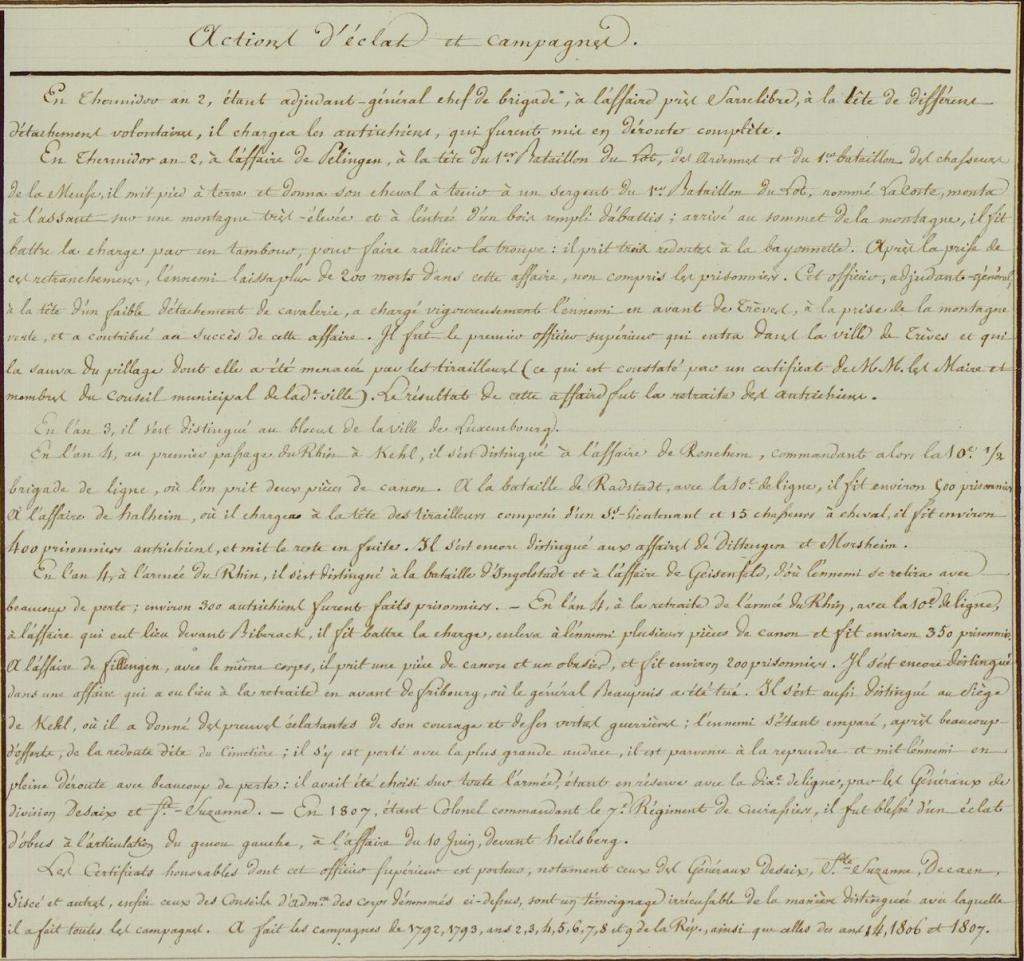 Actions d'éclat et campagnes.
En Thermidor an 2, étant adjudant-général chef de brigade, à l'affaire près Sarrelibre, à la tête de différens
détachemens volontaires, il chargea les autrichiens, qui furent mis en déroute complète.
En Thermidor an 2, à l'affaire de Pelingen, à la tête du 1er Bataillon du Lot, des Ardennes et du 1er bataillon des chasseurs
de la Meuse, il mit pied à terre et donna son cheval à tenir à un sergent du 1er Bataillon du Lot, nommé LaCoste, monta
à l'assaut sur une montagne très-élevée et à l'entrée d'un bois rempli d'abattis ; arrivé au sommet de la montagne, il fit
battre la charge par un tambour, pour faire rallier la troupe : il prit trois redoutes à la bayonnette. Après la prise de
ces retranchemens, l'ennemi laissa plus de 200 morts dans cette affaire, non compris les prisonniers. Cet officier, adjudant-général,
à la tête d'un faible détachement de cavalerie, a chargé vigoureusement l'ennemi en avant de Trèves, à la prise de la montagne
verte, et a contribué au succès de cette affaire. Il fut le premier officier supérieur qui entra dans la ville de Trèves et qui
la sauva du pillage dont elle a été menacée par les tirailleurs (ce qui est constaté par un certificat de M.M. les Maire et
membres du Conseil municipal de lad.e ville). Le résultat de cette affaire fut la retraite des autrichiens.
En l'an 3, il s'est distingué au blocus de la ville de Luxembourg.
En l'an 4, au premier passage du Rhin à Kehl, il s'est distingué à l'affaire de Renchem, commandant alors la 10e. 1/2
brigade de ligne, où l'on prit deux pièces de canon. A la bataille de Radstadt, avec la 10e de ligne, il fit environ 500 prisonniers
A l'affaire de halheim, où il chargea à la tête des tirailleurs composés d'un S.-lieutenant et 15 chasseurs à cheval, il fit environ
400 prisonniers autrichiens, et mit le reste en fuite. Il s'est encore distingué aux affaires de Dittengen et Morsheim.
En l'an 4, à l'armée du Rhin, il s'est distingué à la bataille d'Ingolstadt et à l'affaire de Geisenfeld, d'où l'ennemi se retira avec
beaucoup de perte ; environ 300 autrichiens furent faits prisonniers. — En l'an 4, à la retraite de l'armée du Rhin, avec la 10e de ligne,
à l'affaire qui eut lieu devant Biberack, il fit battre la charge, enleva à l'ennemi plusieurs pièces de canon et fit environ 350 prisonniers.
A l'affaire de fillingen, avec le même corps, il prit une pièce de canon et un obusier, et fit environ 200 prisonniers. Il s'est encore distingué
dans une affaire qui a eu lieu à la retraite en avant de fribourg, où le général Beaupuis a été tué. Il s'est aussi distingué au Siège
de Kehl, où il a donné des preuves éclatantes de son courage et de ses vertus guerrières ; l'ennemi s'étant emparé, après beaucoup
d'efforts, de la redoute dite du Cimetière ; il s'y est porté avec la plus grande audace, il est parvenu à la reprendre et mit l'ennemi en
pleine déroute avec beaucoup de perte : il avait été choisi sur toute l'armée, étant en réserve avec la dix.e de ligne, par les Généraux de
division Desaix et S.te-Suzanne. — En 1807, étant Colonel commandant le 7.e Régiment de Cuirassiers, il fut blessé d'un éclat
d'obus à l'articulation du genou gauche, à l'affaire du 10 Juin, devant heilsberg.
Les Certificats honorables dont cet officier supérieur est porteur, notament ceux des Généraux Desaix, S.te-Suzanne, Decaen,
Siscé et autres, enfin ceux des Conseils d'adm.on des corps dénommés ci-dessus, sont un témoignage irrécusable de la manière distinguée avec laquelle
il a fait toutes les campagnes. A fait les campagnes de 1792, 1793, ans 2, 3, 4, 5, 6, 7, 8 et 9 de la Rép., ainsi que celles des ans 14, 1806 et 1807.